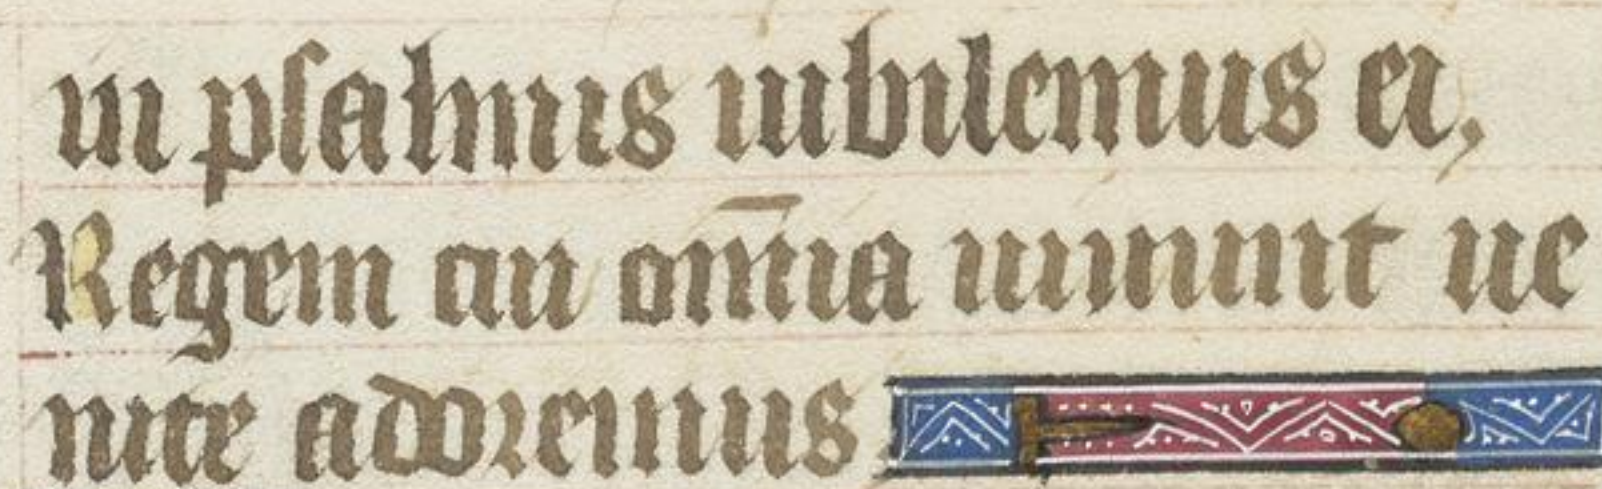 in psalmis iubilemus ei,
Regem cui om̄ia uiuunt ue
nite adoremus